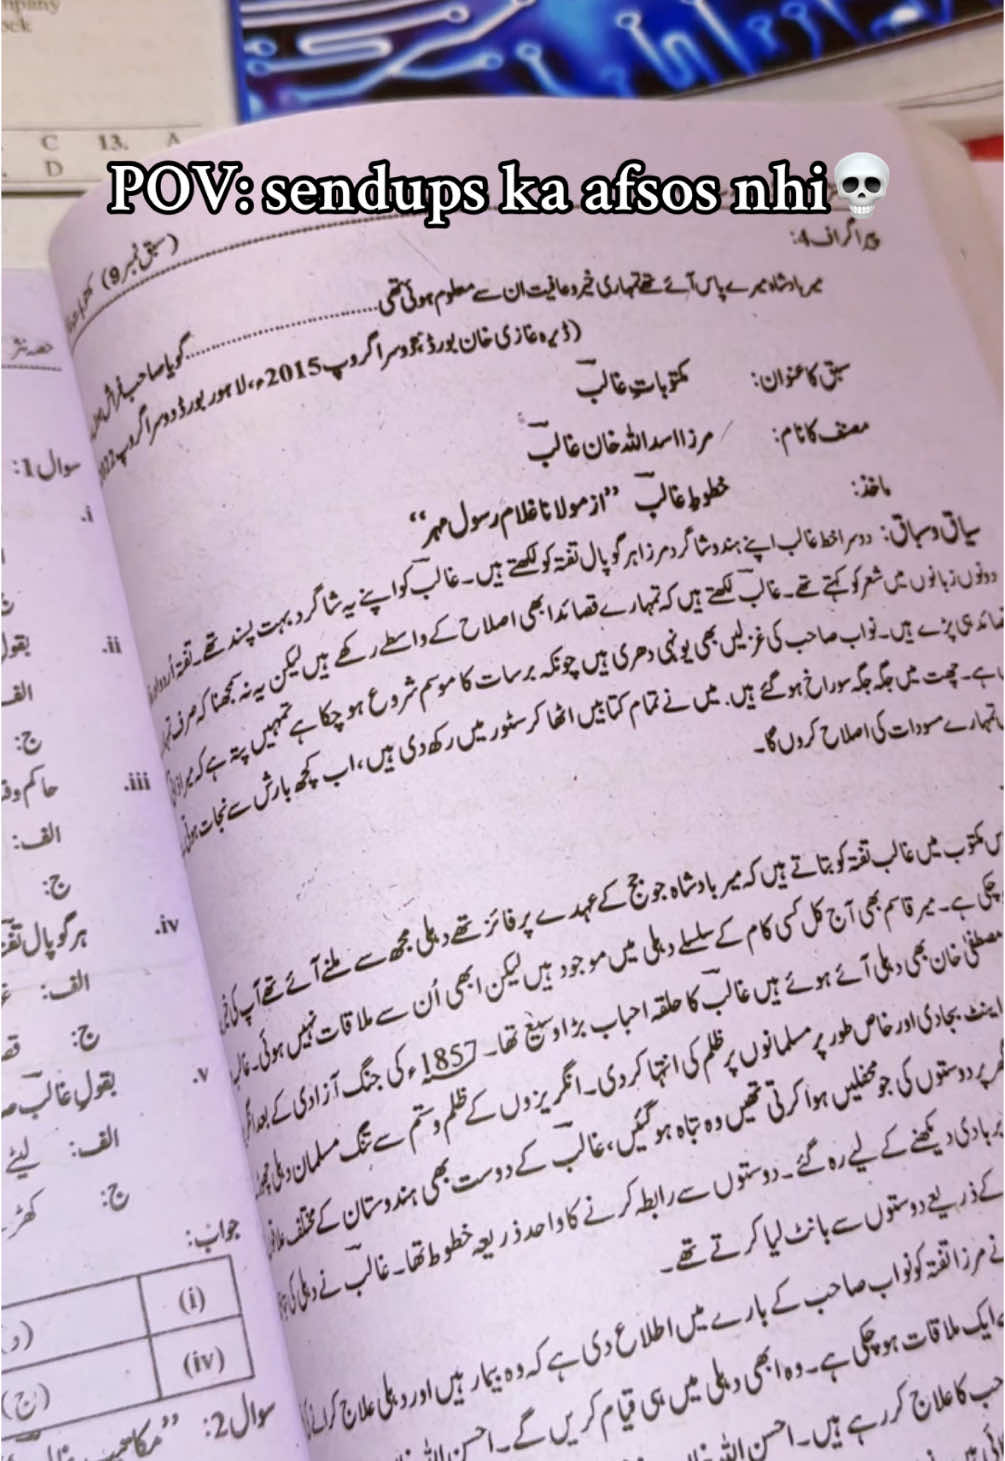 C 13. A
D
POV: sendups ka afsos nhi💀
(سبق نمبر 9)
پیراگراف 4:
میر بادشاہ میرے پاس آئے تھے تمہاری خیر و عافیت ان سے معلوم ہوئی تھی .......... گویا صاحب فراش ہیں
(ڈیرہ غازی خان بورڈ دوسرا گروپ 2015ء، لاہور بورڈ دوسرا گروپ 2022
سبق کا عنوان: مکتوباتِ غالبؔ
مصنف کا نام: مرزا اسد اللہ خان غالبؔ
ماخذ: خطوطِ غالبؔ ”از مولانا غلام رسول مہر“
سیاق و سباق: دوسرا خط غالب اپنے ہندو شاگرد مرزا ہر گوپال تفتہ کو لکھتے ہیں۔ غالبؔ کو اپنے یہ شاگرد بہت پسند تھے۔ تفتہ اُردو اور
دونوں زبانوں میں شعر کہتے تھے۔ غالبؔ لکھتے ہیں کہ تمہارے قصائد ابھی اصلاح کے واسطے رکھے ہیں لیکن یہ نہ سمجھنا کہ صرف
ہی پڑے ہیں۔ نواب صاحب کی غزلیں بھی یونہی دھری ہیں چونکہ برسات کا موسم شروع ہو چکا ہے تمہیں پتہ ہے کہ میرا
ہے۔ چھت میں جگہ جگہ سوراخ ہو گئے ہیں۔ میں نے تمام کتابیں اٹھا کر سٹور میں رکھ دی ہیں، اب کچھ بارش سے نجات ہوئی
تمہارے مسودات کی اصلاح کروں گا۔
مکتوب میں غالب تفتہ کو بتاتے ہیں کہ میر بادشاہ جو جج کے عہدے پر فائز تھے دہلی مجھ سے ملنے آئے تھے آپ کی
چکی ہے۔ میر قاسم بھی آج کل کسی کام کے سلسلے دہلی میں موجود ہیں لیکن ابھی اُن سے ملاقات نہیں ہوئی۔
مصطفیٰ خان بھی دہلی آئے ہوئے ہیں غالبؔ کا حلقہ احباب بڑا وسیع تھا۔ 1857ء کی جنگ آزادی کے بعد
اینٹ بجا دی اور خاص طور پر مسلمانوں پر ظلم کی انتہا کر دی۔ انگریزوں کے ظلم و ستم سے تنگ مسلمان دہلی
پر دوستوں کی جو محفلیں ہوا کرتی تھیں وہ تباہ ہو گئیں، غالبؔ کے دوست بھی ہندوستان کے مختلف
بربادی دیکھنے کے لیے رہ گئے۔ دوستوں سے رابطہ کرنے کا واحد ذریعہ خطوط تھا۔ غالبؔ نے دہلی کی
کے ذریعے دوستوں سے بانٹ لیا کرتے تھے۔
نے مرزا تفتہ کو نواب صاحب کے بارے میں اطلاع دی ہے کہ وہ بیمار ہیں اور دہلی علاج کرانے
ایک ملاقات ہو چکی ہے۔ وہ ابھی دہلی میں ہی قیام کریں گے۔ احسن اللہ
کا علاج کر رہے ہیں۔ احسن اللہ
حصہ نثر
سوال 1:
i.
ii. بقول
الف
ج:
iii. حاکم
الف:
ج:
iv. ہر گوپال تفتہ
الف:
ج:
v. بقولِ غالبؔ
الف: لیٹے
ج:
جواب:
(i)
(د)
(iv)
(ج)
سوال 2: